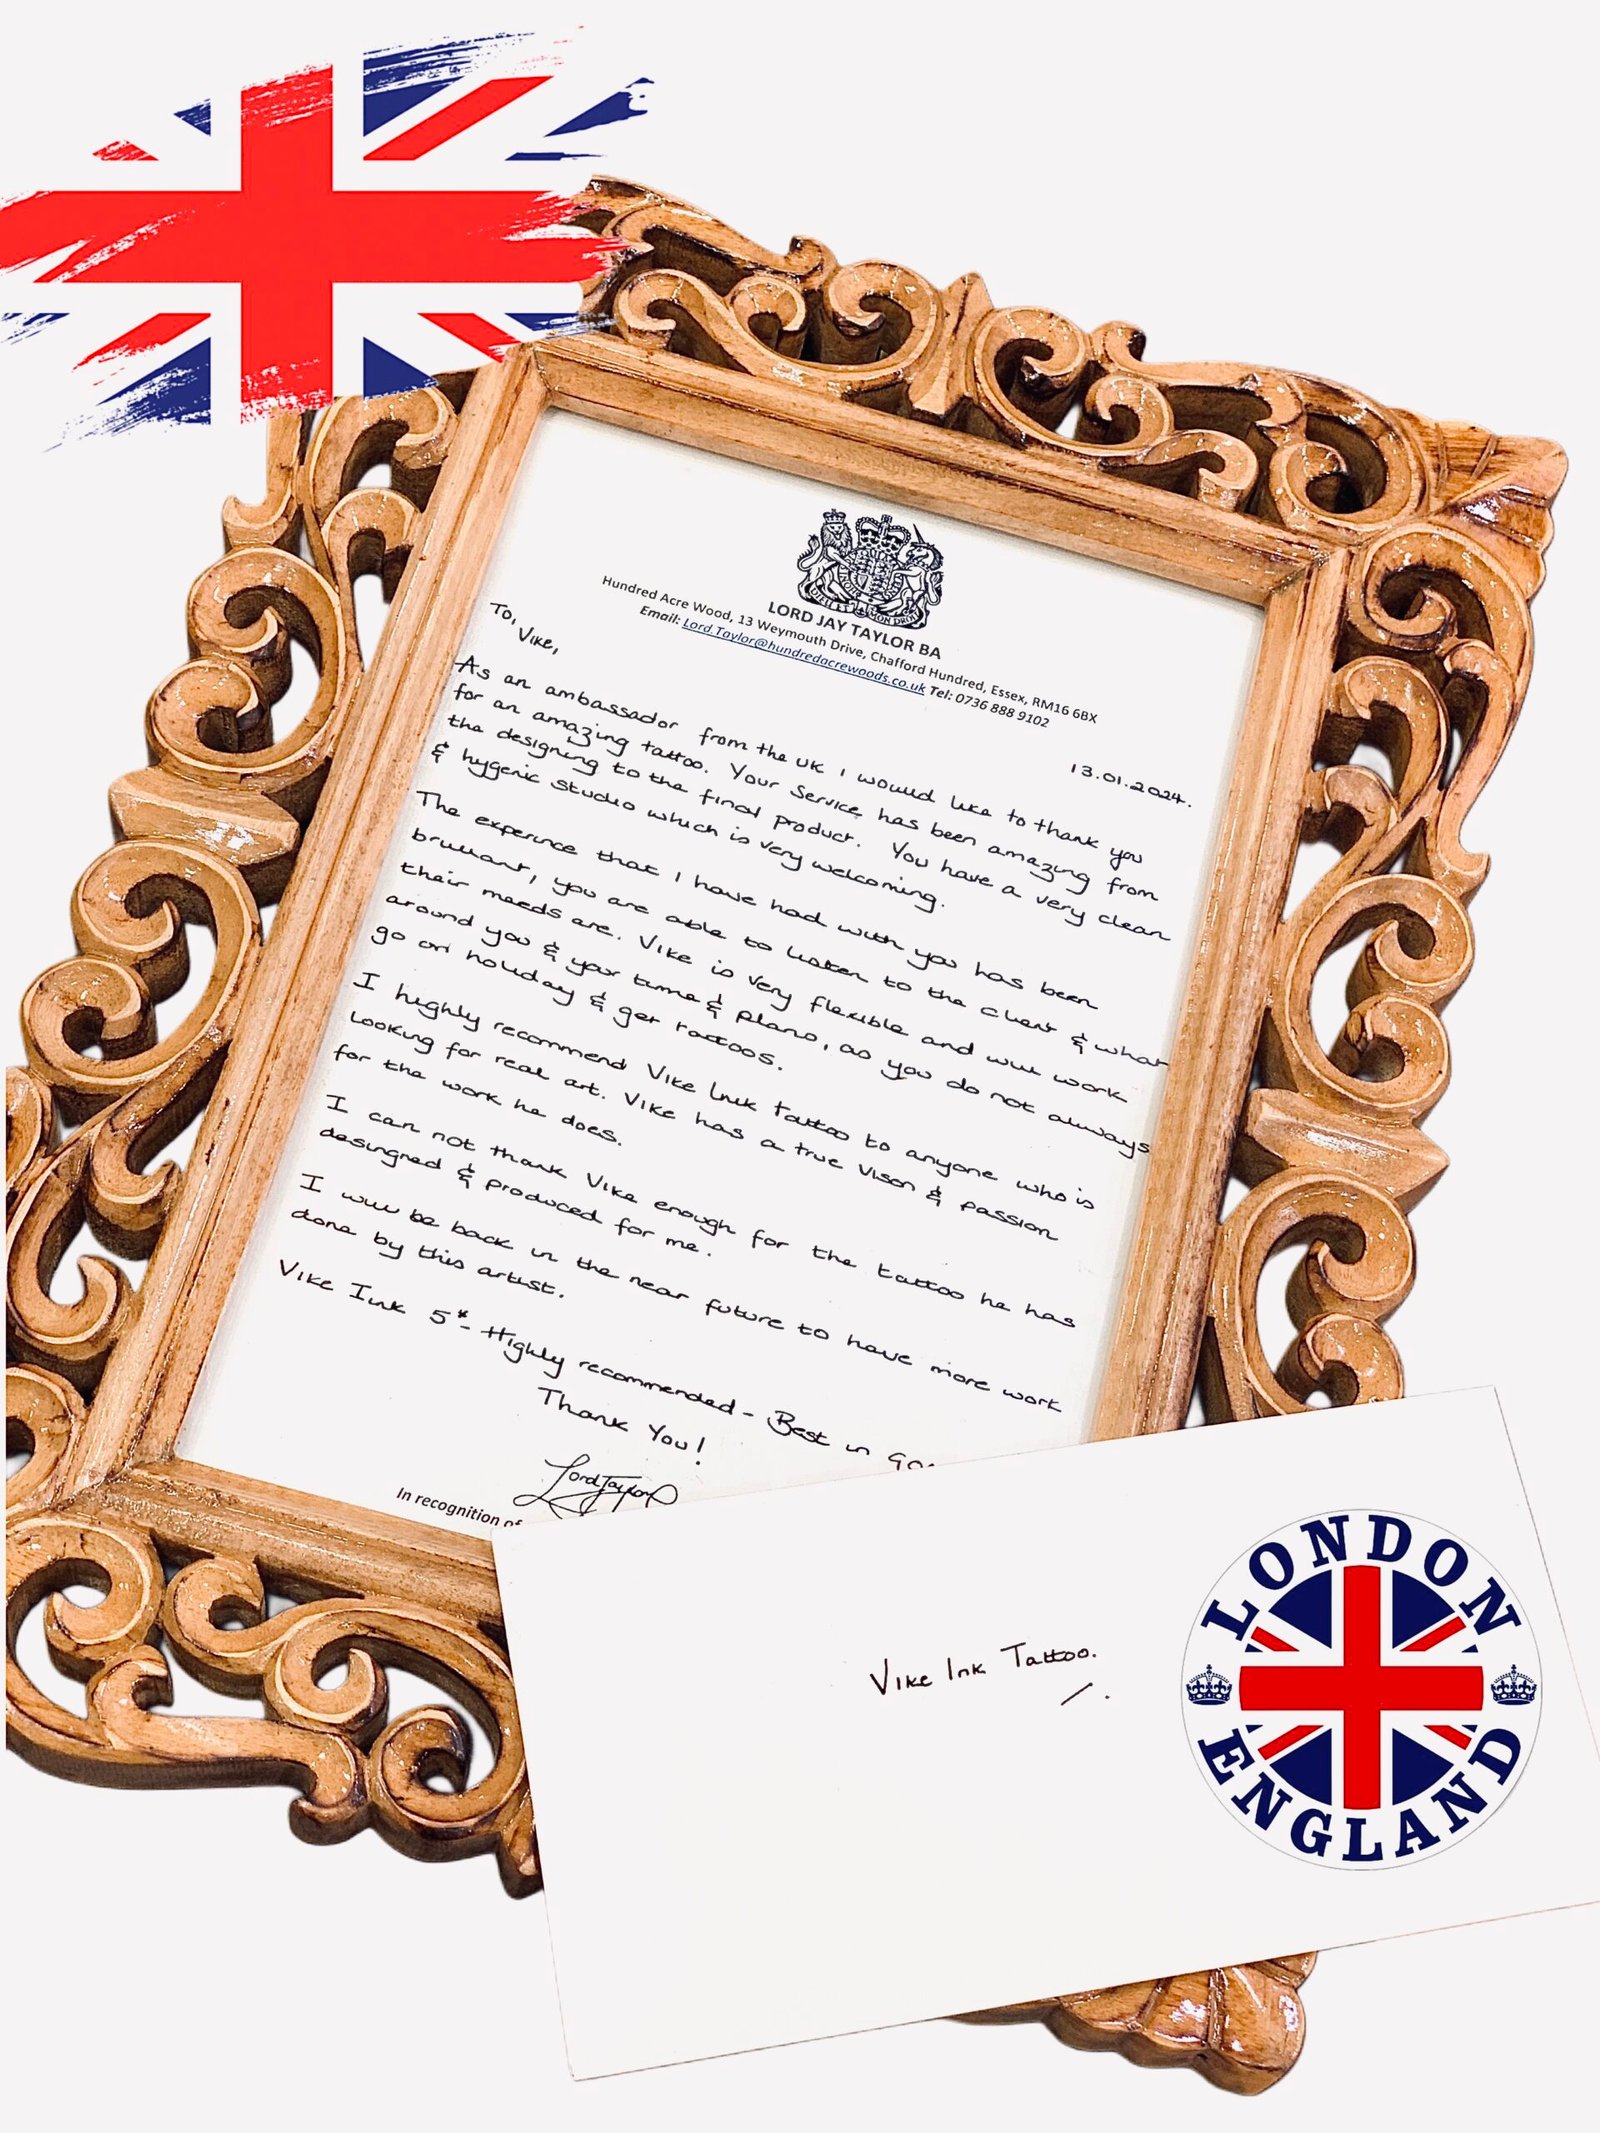 LORD JAY TAYLOR BA
Hundred Acre Wood, 13 Weymouth Drive, Chafford Hundred, Essex, RM16 6BX
Email: Lord.Taylor@hundredacrewoods.co.uk Tel: 0736 888 9102
13.01.2024.
To,
Vike,
As an ambassador from the UK I would like to thank you
for an amazing tattoo. Your Service has been amazing from
the designing to the final product. You have a very clean
& hygenic studio which is very welcoming.
The experince that I have had with you has been
brilliant, you are able to listen to the client & what
their needs are. Vike is very flexible and will work
around you & your time & plans, as you do not always
go on holiday & get tattoos.
I highly recommend Vike Ink tattoo to anyone who is
looking for real art. Vike has a true vison & passion
for the work he does.
I can not thank Vike enough for the tattoo he has
desingned & produced for me.
I will be back in the near future to have more work
done by this artist.
Vike Ink 5* - Highly recommended - Best in
Thank You!
Lord Taylor
In recognition of
Vike Ink Tattoo.
LONDON
ENGLAND